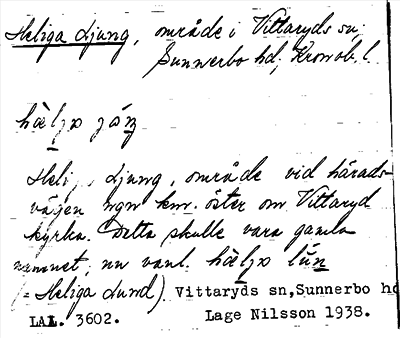 Heliga Ljung, område i Vittaryds sn,
Sunnerbo hd, Kronob. l.
Heli Ljung, område vid härads-
vägen ngn km. öster om Vittaryd
kyrka. Detta skulle vara gamla
namnet, nu vanl.
= Heliga Lund). Vittaryds sn, Sunnerbo hd
LAL. 3602. Lage Nilsson 1938.